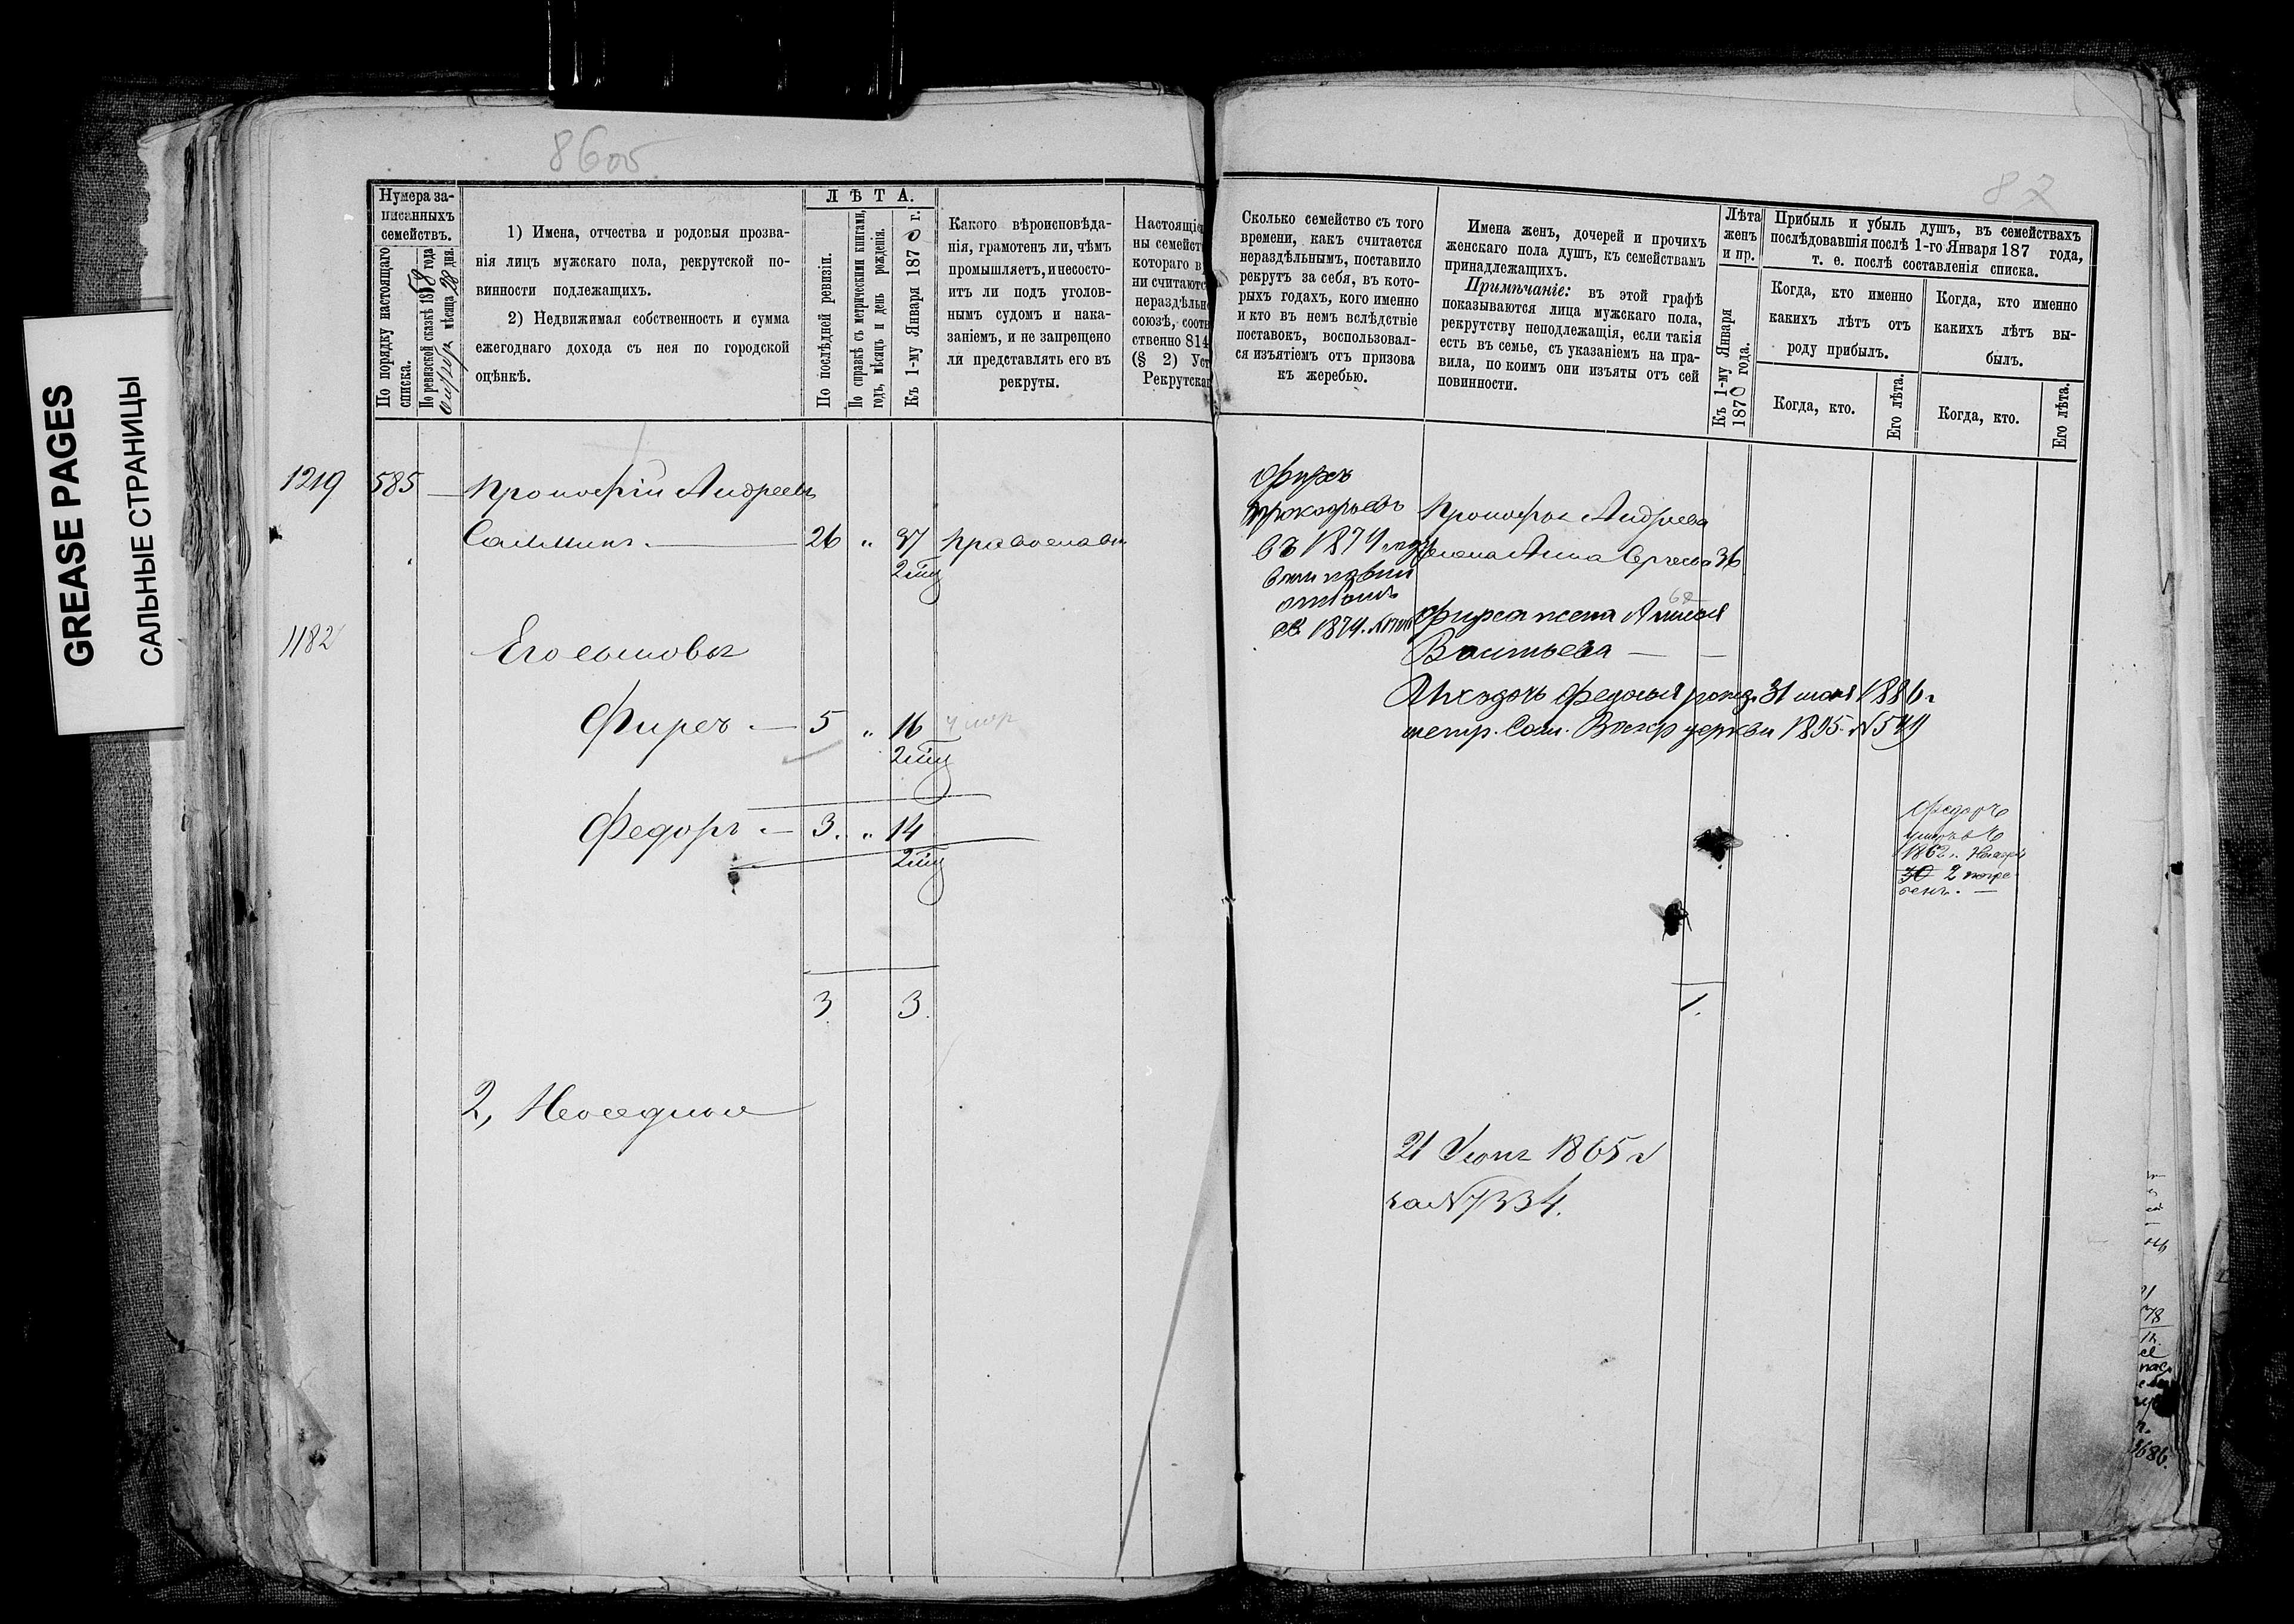 GREASE PAGES
САЛЬНЫЕ СТРАНИЦЫ
86об
Нумера за-
писанныхъ
семействъ.
По порядку настоящаго
списка.
По ревизской сказкѣ 1858 года
мѣсяца 28 дня.
1) Имена, отчества и родовыя прозва-
нія лицъ мужскаго пола, рекрутской по-
винности подлежащихъ.
2) Недвижимая собственность и сумма
ежегоднаго дохода съ нея по городской
оцѣнкѣ.
ЛѢТА.
По послѣдней ревизіи.
По справкѣ съ метрическими книгами,
годъ, мѣсяцъ и день рожденія.
Къ 1-му Января 1870 г.
Какого вѣроисповѣда-
нія, грамотенъ ли, чѣмъ
промышляетъ, и несосто-
итъ ли подъ уголов-
нымъ судомъ и нака-
заніемъ, и не запрещено
ли представлять его въ
рекруты.
Настоящі
ны семейст
котораго в
ни считаютс
нераздѣльн
союзѣ, соотв
ственно 814
(§ 2) Уст
Рекрутска
1219 585 — Прокофій Андреевъ
— 26 „ 37 православн
1182
Его сыновья
Фирсъ — 5 „ 16
Федоръ — 3. „ 14
3 3.
2, Неоседлые
87
Сколько семейство съ того
времени, какъ считается
нераздѣльнымъ, поставило
рекрутъ за себя, въ кото-
рыхъ годахъ, кого именно
и кто въ немъ вслѣдствіе
поставокъ, воспользовал-
ся изъятіемъ отъ призова
къ жеребью.
Имена женъ, дочерей и прочихъ
женскаго пола душъ, къ семействамъ
принадлежащихъ.
Примѣчаніе: въ этой графѣ
показываются лица мужскаго пола,
рекрутству неподлежащія, если такія
есть въ семье, съ указаніемъ на пра-
вила, по коимъ они изъяты отъ сей
повинности.
Лѣта
женъ
и пр.
Къ 1-му Января
1870 года.
Прибыль и убыль душъ, въ семействахъ
послѣдовавшія послѣ 1-го Января 187 года,
т. е. послѣ составленія списка.
Когда, кто именно
какихъ лѣтъ отъ
роду прибылъ.
Когда, кто именно
какихъ лѣтъ вы-
былъ.
Когда, кто.
Его лѣта.
Когда, кто.
Его лѣта.
Фирсъ
Прокофьевъ
въ 1874 году
Прокофья Андреева
жена Анна 36
Фирса жена
Васильева — —
Ихъ дочь Федосья рожд. 31 мая 1886 г
метр. церкви 1895
Федоръ
умеръ
1862 г. Ноября
30 2 погре-
бенъ. —
1.
21 Іюня 1865 г
за № 7334.